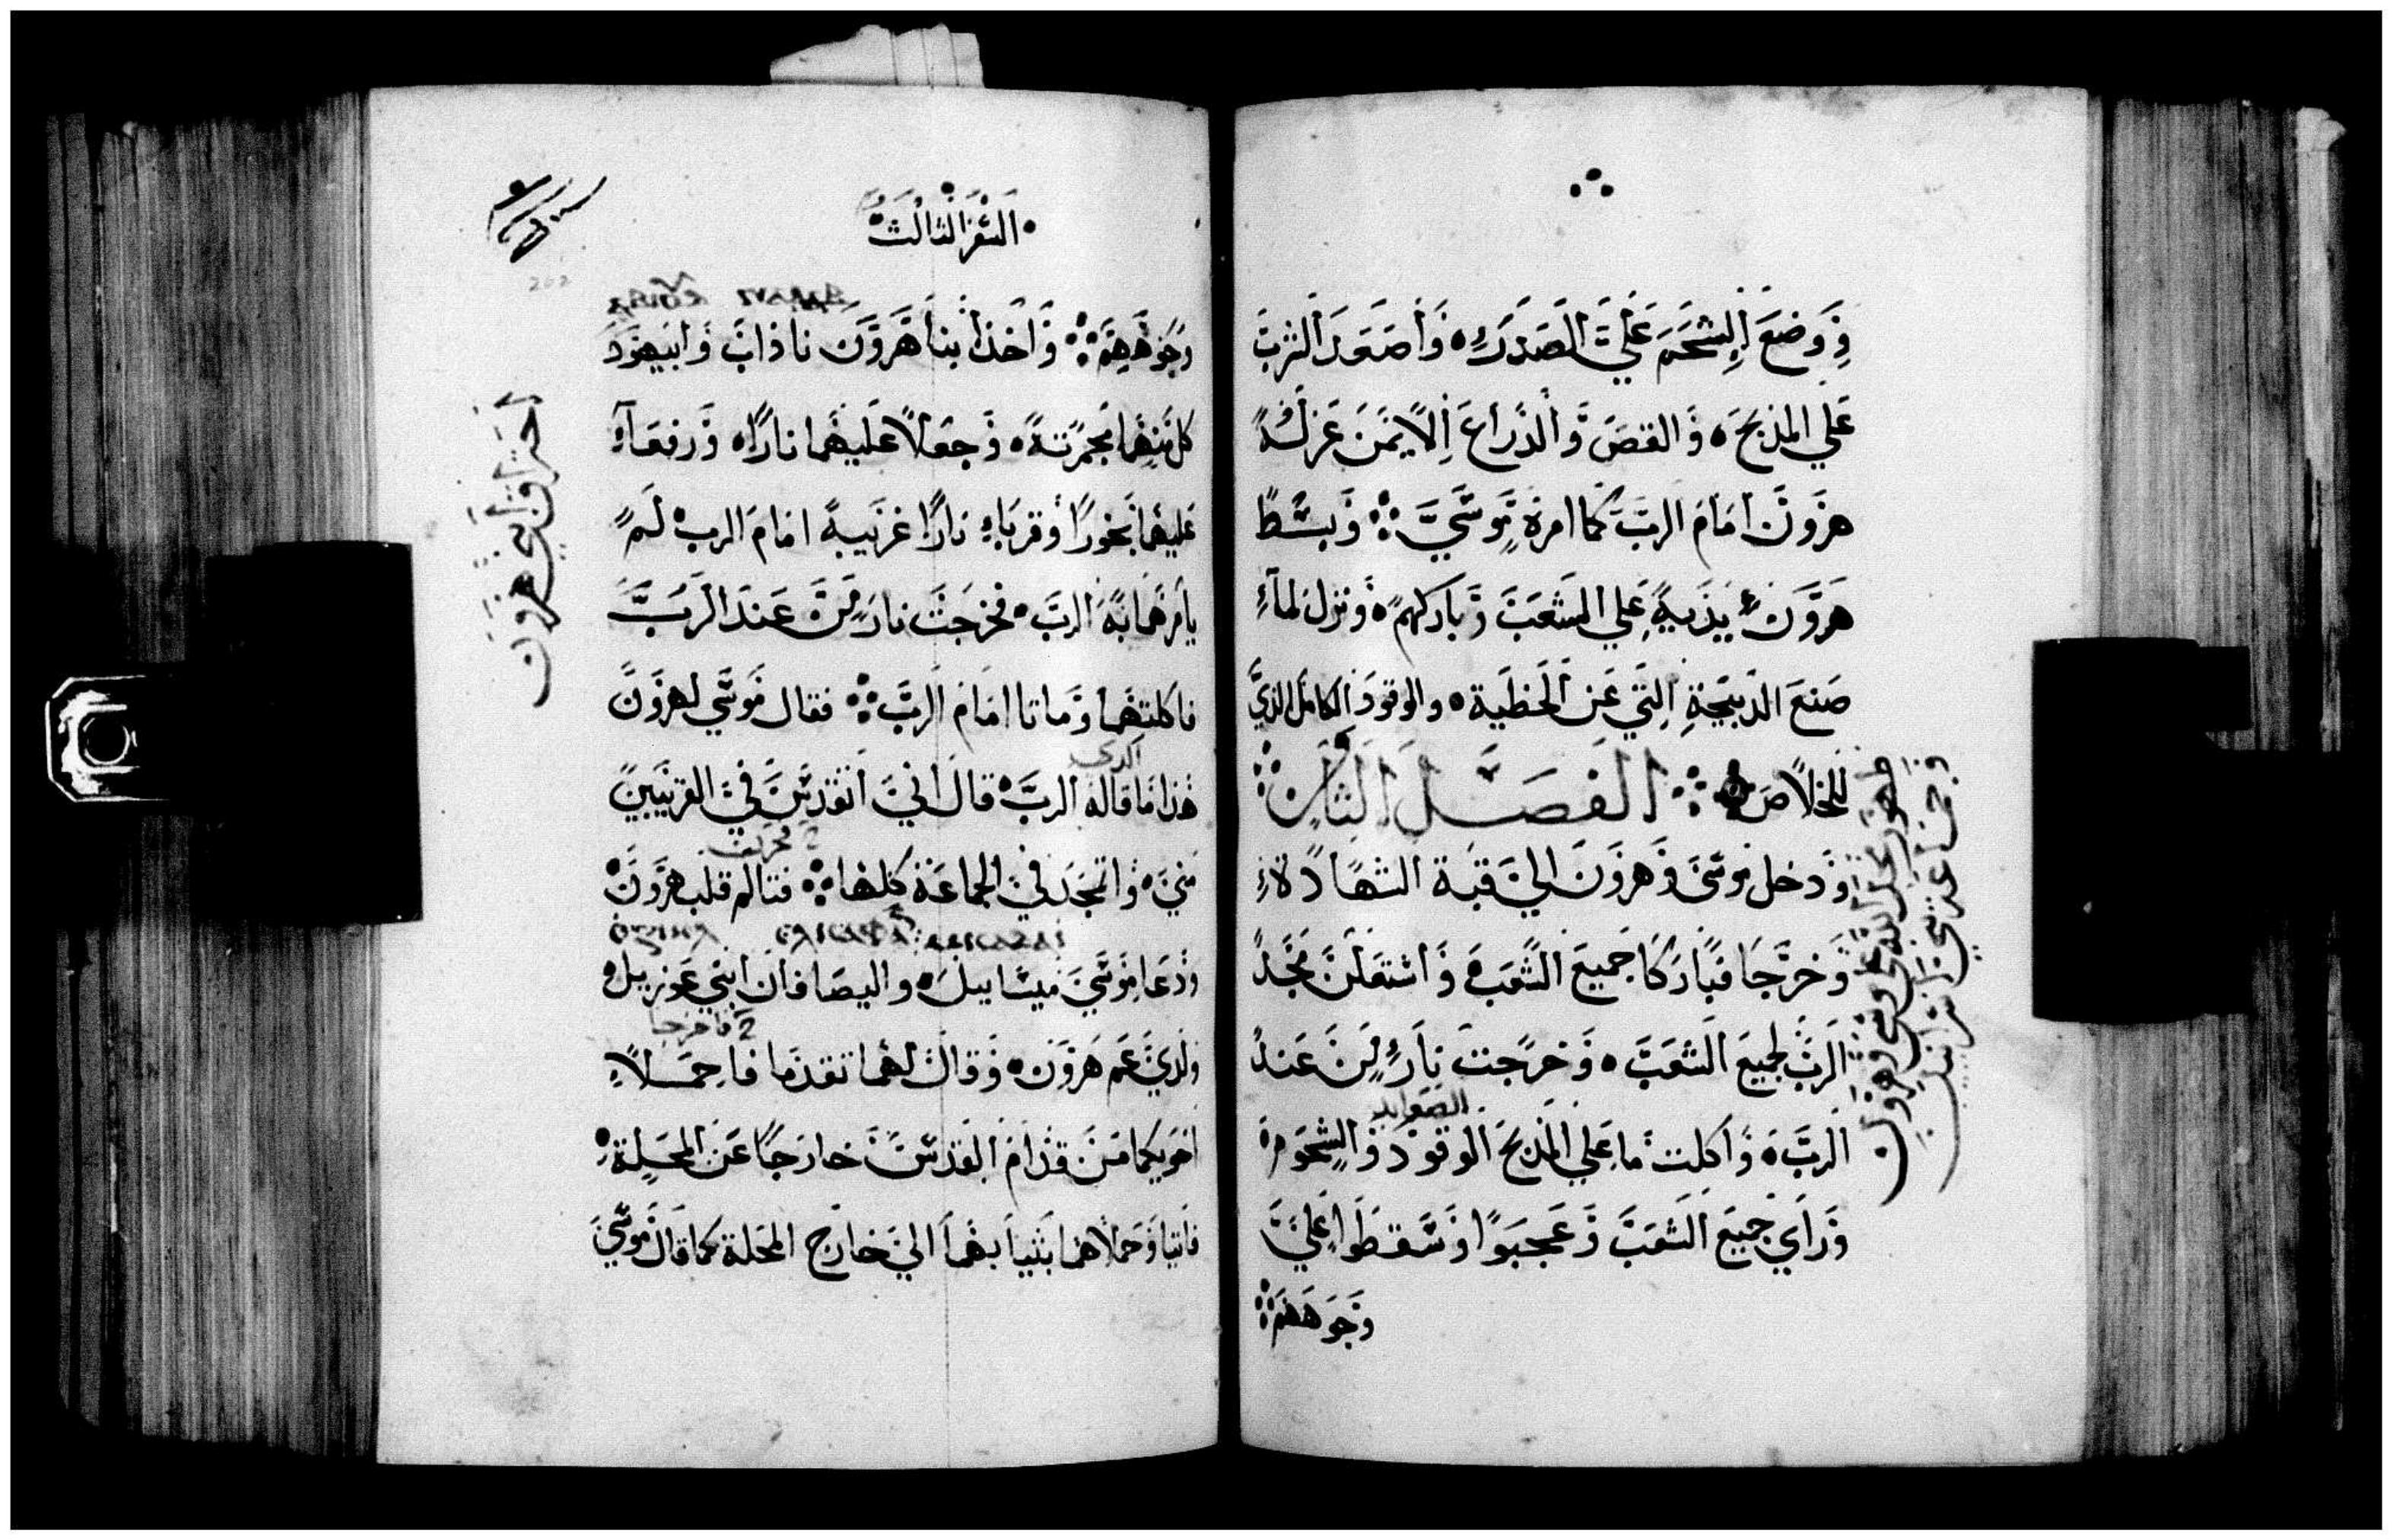 ووضع الشحم علي الصدر ه واصعد الرب
علي المذبح ه والقص والذراع الايمن عزله
هرون امام الرب كما امره موسي ∴ وبسط
هرون يديه علي الشعب وباركهم ه ونزل لما
صنع الدبيحة التي عن الخطية ه والوقود الكامل الذي
للخلاص ∴ الفصل الثامن
ودخل موسي وهرون الي قبة الشهادة
وخرجا فباركا جميع الشعب ه واشتعلن مجد
الرب لجميع الشعب ه وخرجت نار من عند
الرب ه واكلت ما علي المذبح الوقود والشحوم
وراي جميع الشعب وعجبوا وسقطوا علي
وجوههم
السفر الثالث
وجوههم ∴ واخذ ابنا هرون ناذاب وابيهود
كل منهما مجمرته ه وجعلا عليهما نارا ه ورفعا
عليهما بخورا وقربا نارا غريبة امام الرب لم
يامرهما به الرب ه فخرجت نار من عند الرب
فاكلتهما وماتا امام الرب ∴ فقال موسي لهرون
الذي
هذا ما قاله الرب ه قال اني اتقدس في القريبين
مني ه واتمجد في الجماعة كلها ∴ فتالم قلب هرون
ودعا موسي ميشاييل ه واليصافان ابني عوزييل
2 فاخرجا
ولدي عم هرون ه وقال لهما تقدما فاحملا
اخويكما من قدام القدس خارجا عن المحلة ه
فاتيا وحملاهما بثيابهما الي خارج المحلة كما قال موسي
احتراق ابني هرون